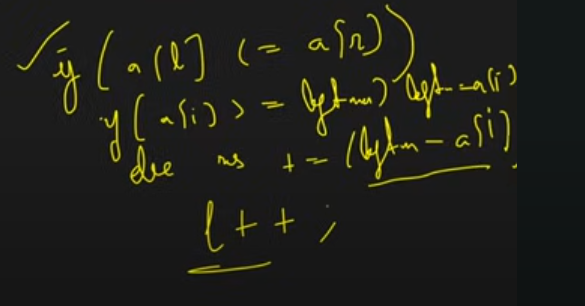 if (a[l] <= a[r])
if (a[i] >= leftmax) leftm = a[i]
else res += (leftm - a[i])
l++;